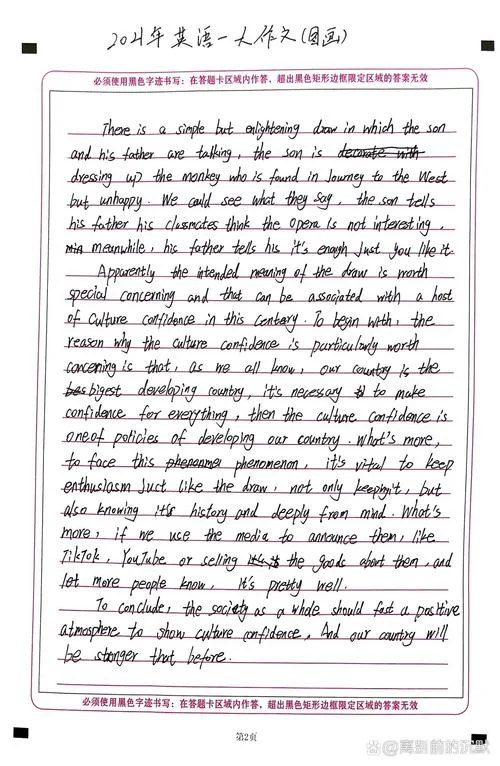 2021年英语一大作文(图画)
必须使用黑色字迹书写：在答题卡区域内作答，超出黑色矩形边框限定区域的答案无效
There is a simple but enlightening draw in which the son
and his father are talking, the son is decorate with
dressing up the monkey who is found in Journey to the West
but unhappy. We could see what they say, the son tells
his father his classmates think the opera is not interesting,
min meanwhile, his father tells his it's enough just you like it.
Apparently the intended meaning of the draw is worth
special concerning and that can be associated with a host
of culture confidence in this century. To begin with, the
reason why the culture confidence is particularly worth
concerning is that, as we all know, our country is the
bes bigest developing country, it's necessary to make
confidence for everything, then the culture confidence is
one of policies of developing our country. What's more,
to face this phenonmei phenomenon, it's vital to keep
enthusiasm just like the draw, not only keeping it, but
also knowing it's history and deeply from mind. What's
more, if we use the media to announce them, like
TikTok, YouTube or selling the goods about them, and
let more people know, it's pretty well.
To conclude, the society as a whole should fast a positive
atmosphere to show culture confidence, And our country will
be stonger that before.
必须使用黑色字迹书写：在答题卡区域内作答，超出黑色矩形边框限定区域的答案无效
第2页
知乎 @离别前的沉默